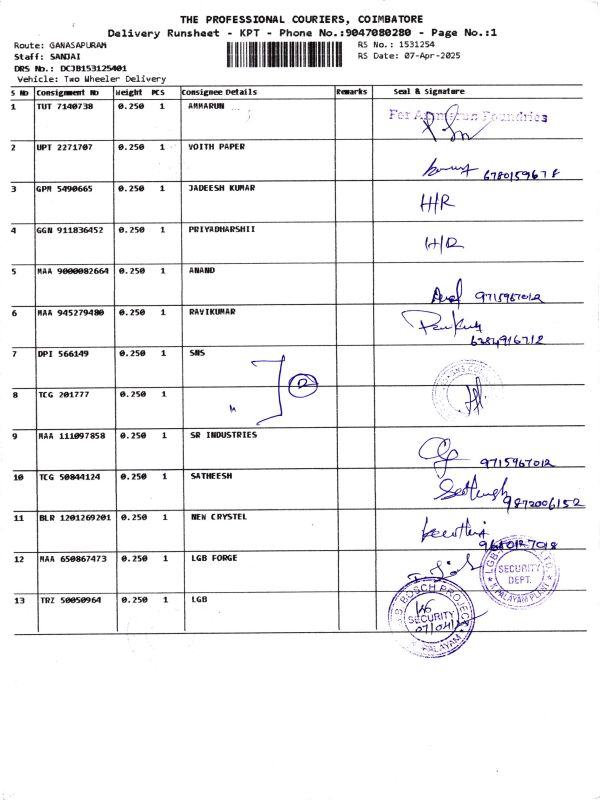 THE PROFESSIONAL COURIERS, COIMBATORE
Delivery Runsheet - KPT - Phone No.:9047080280 - Page No.:1
Route: GANASAPURAM
RS No.: 1531254
Staff: SANJAI
RS Date: 07-Apr-2025
DRS No.: DCJB153125401
Vehicle: Two Wheeler Delivery
S No Consignment No Weight PCS Consignee Details Remarks Seal & Signature
1 TUT 7140738 0.250 1 AMMARUN For Ammarun Foundries
2 UPT 2271707 0.250 1 VOITH PAPER 6780159678
3 GPM 5490665 0.250 1 JADEESH KUMAR H/R
4 GGN 911836452 0.250 1 PRIYADHARSHII H/R
5 MAA 9000082664 0.250 1 ANAND 9715967012
6 MAA 945279480 0.250 1 RAVIKUMAR 6384916712
7 DPI 566149 0.250 1 SNS
2
8 TCG 201777 0.250 1
9 MAA 111097858 0.250 1 SR INDUSTRIES 9715967012
10 TCG 50844124 0.250 1 SATHEESH 9872006152
11 BLR 1201269201 0.250 1 NEW CRYSTEL
12 MAA 650867473 0.250 1 LGB FORGE SECURITY DEPT.
13 TRZ 50050964 0.250 1 LGB BOSCH PROJECT SECURITY